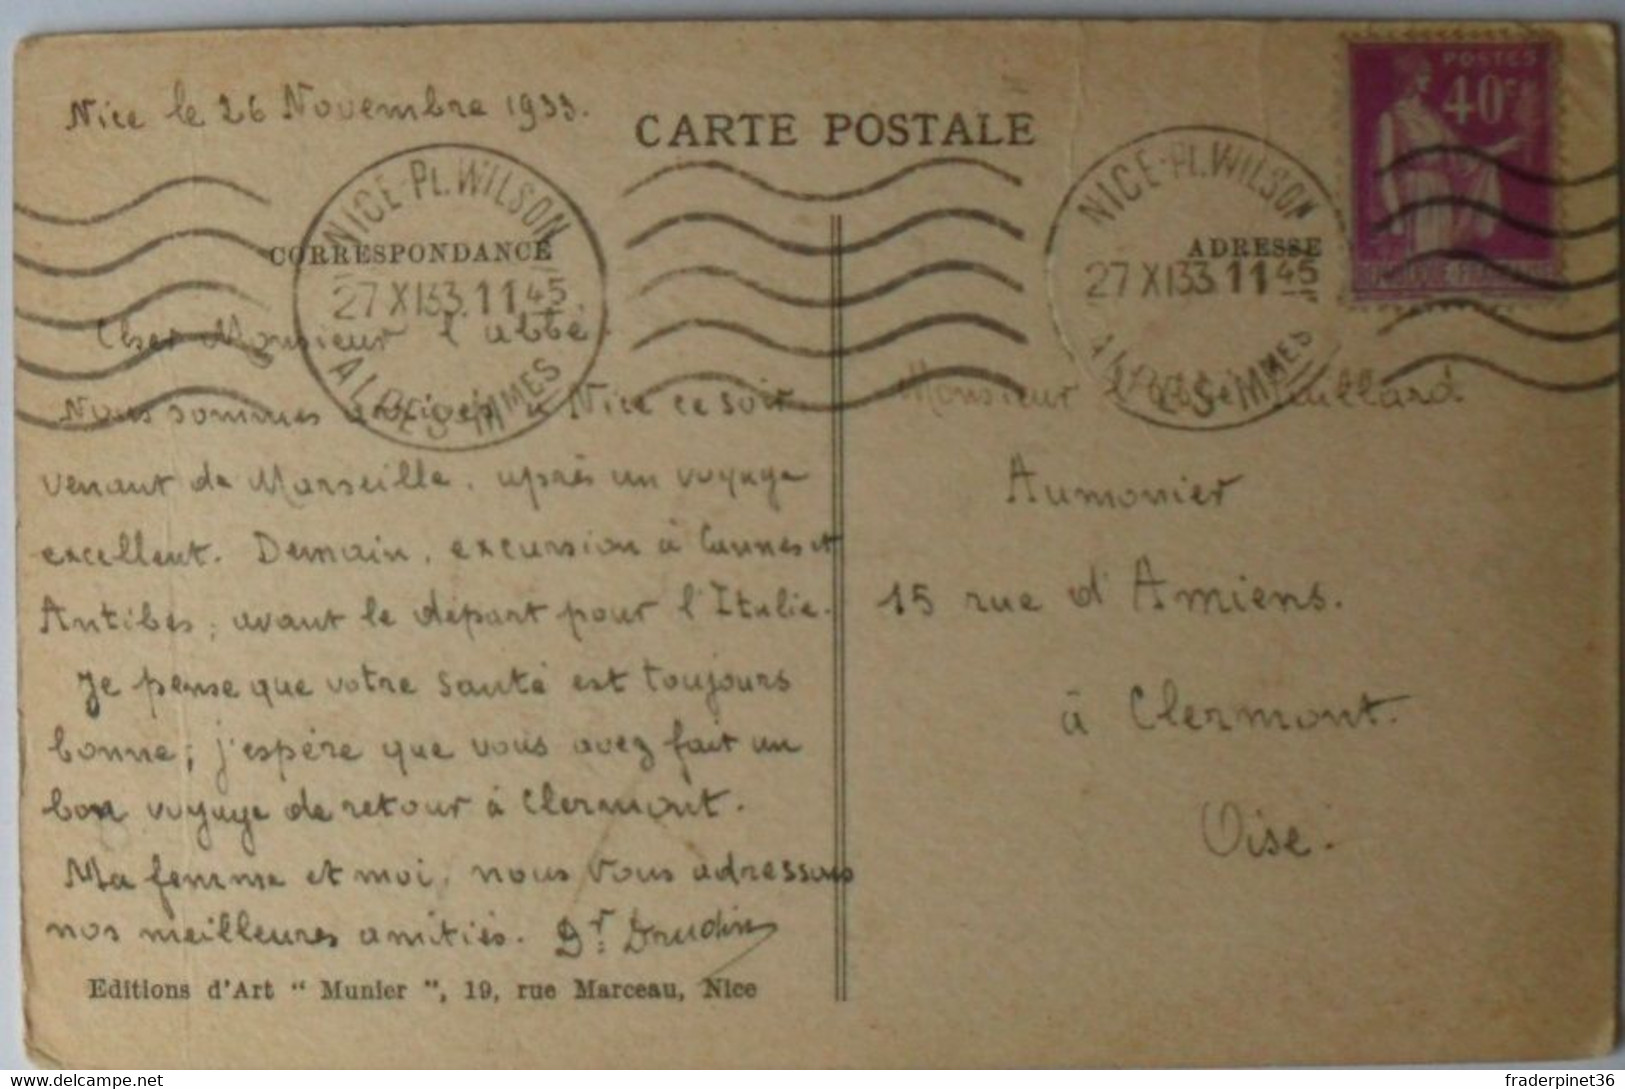 Nice le 26 Novembre 1933.
CARTE POSTALE
POSTES
40c
NICE-PL.WILSON
27 XI 33. 11 45
ALPES-MMES
NICE-PL.WILSON
27 XI 33 11 45
ALPES-MMES
CORRESPONDANCE
ADRESSE
Cher Monsieur l'abbé.
Nous sommes arrivés à Nice ce soir
venant de Marseille, après un voyage
excellent. Demain, excursion à Cannes et
Antibes, avant le départ pour l'Italie.
Je pense que votre santé est toujours
bonne; j'espère que vous avez fait un
bon voyage de retour à Clermont.
Ma femme et moi, nous vous adressons
nos meilleures amitiés. Dr. Drudin
Editions d'Art “ Munier ”, 19, rue Marceau, Nice
Monsieur l'abbé
Aumonier
15 rue d'Amiens.
à Clermont.
Oise.
fraderpinet36